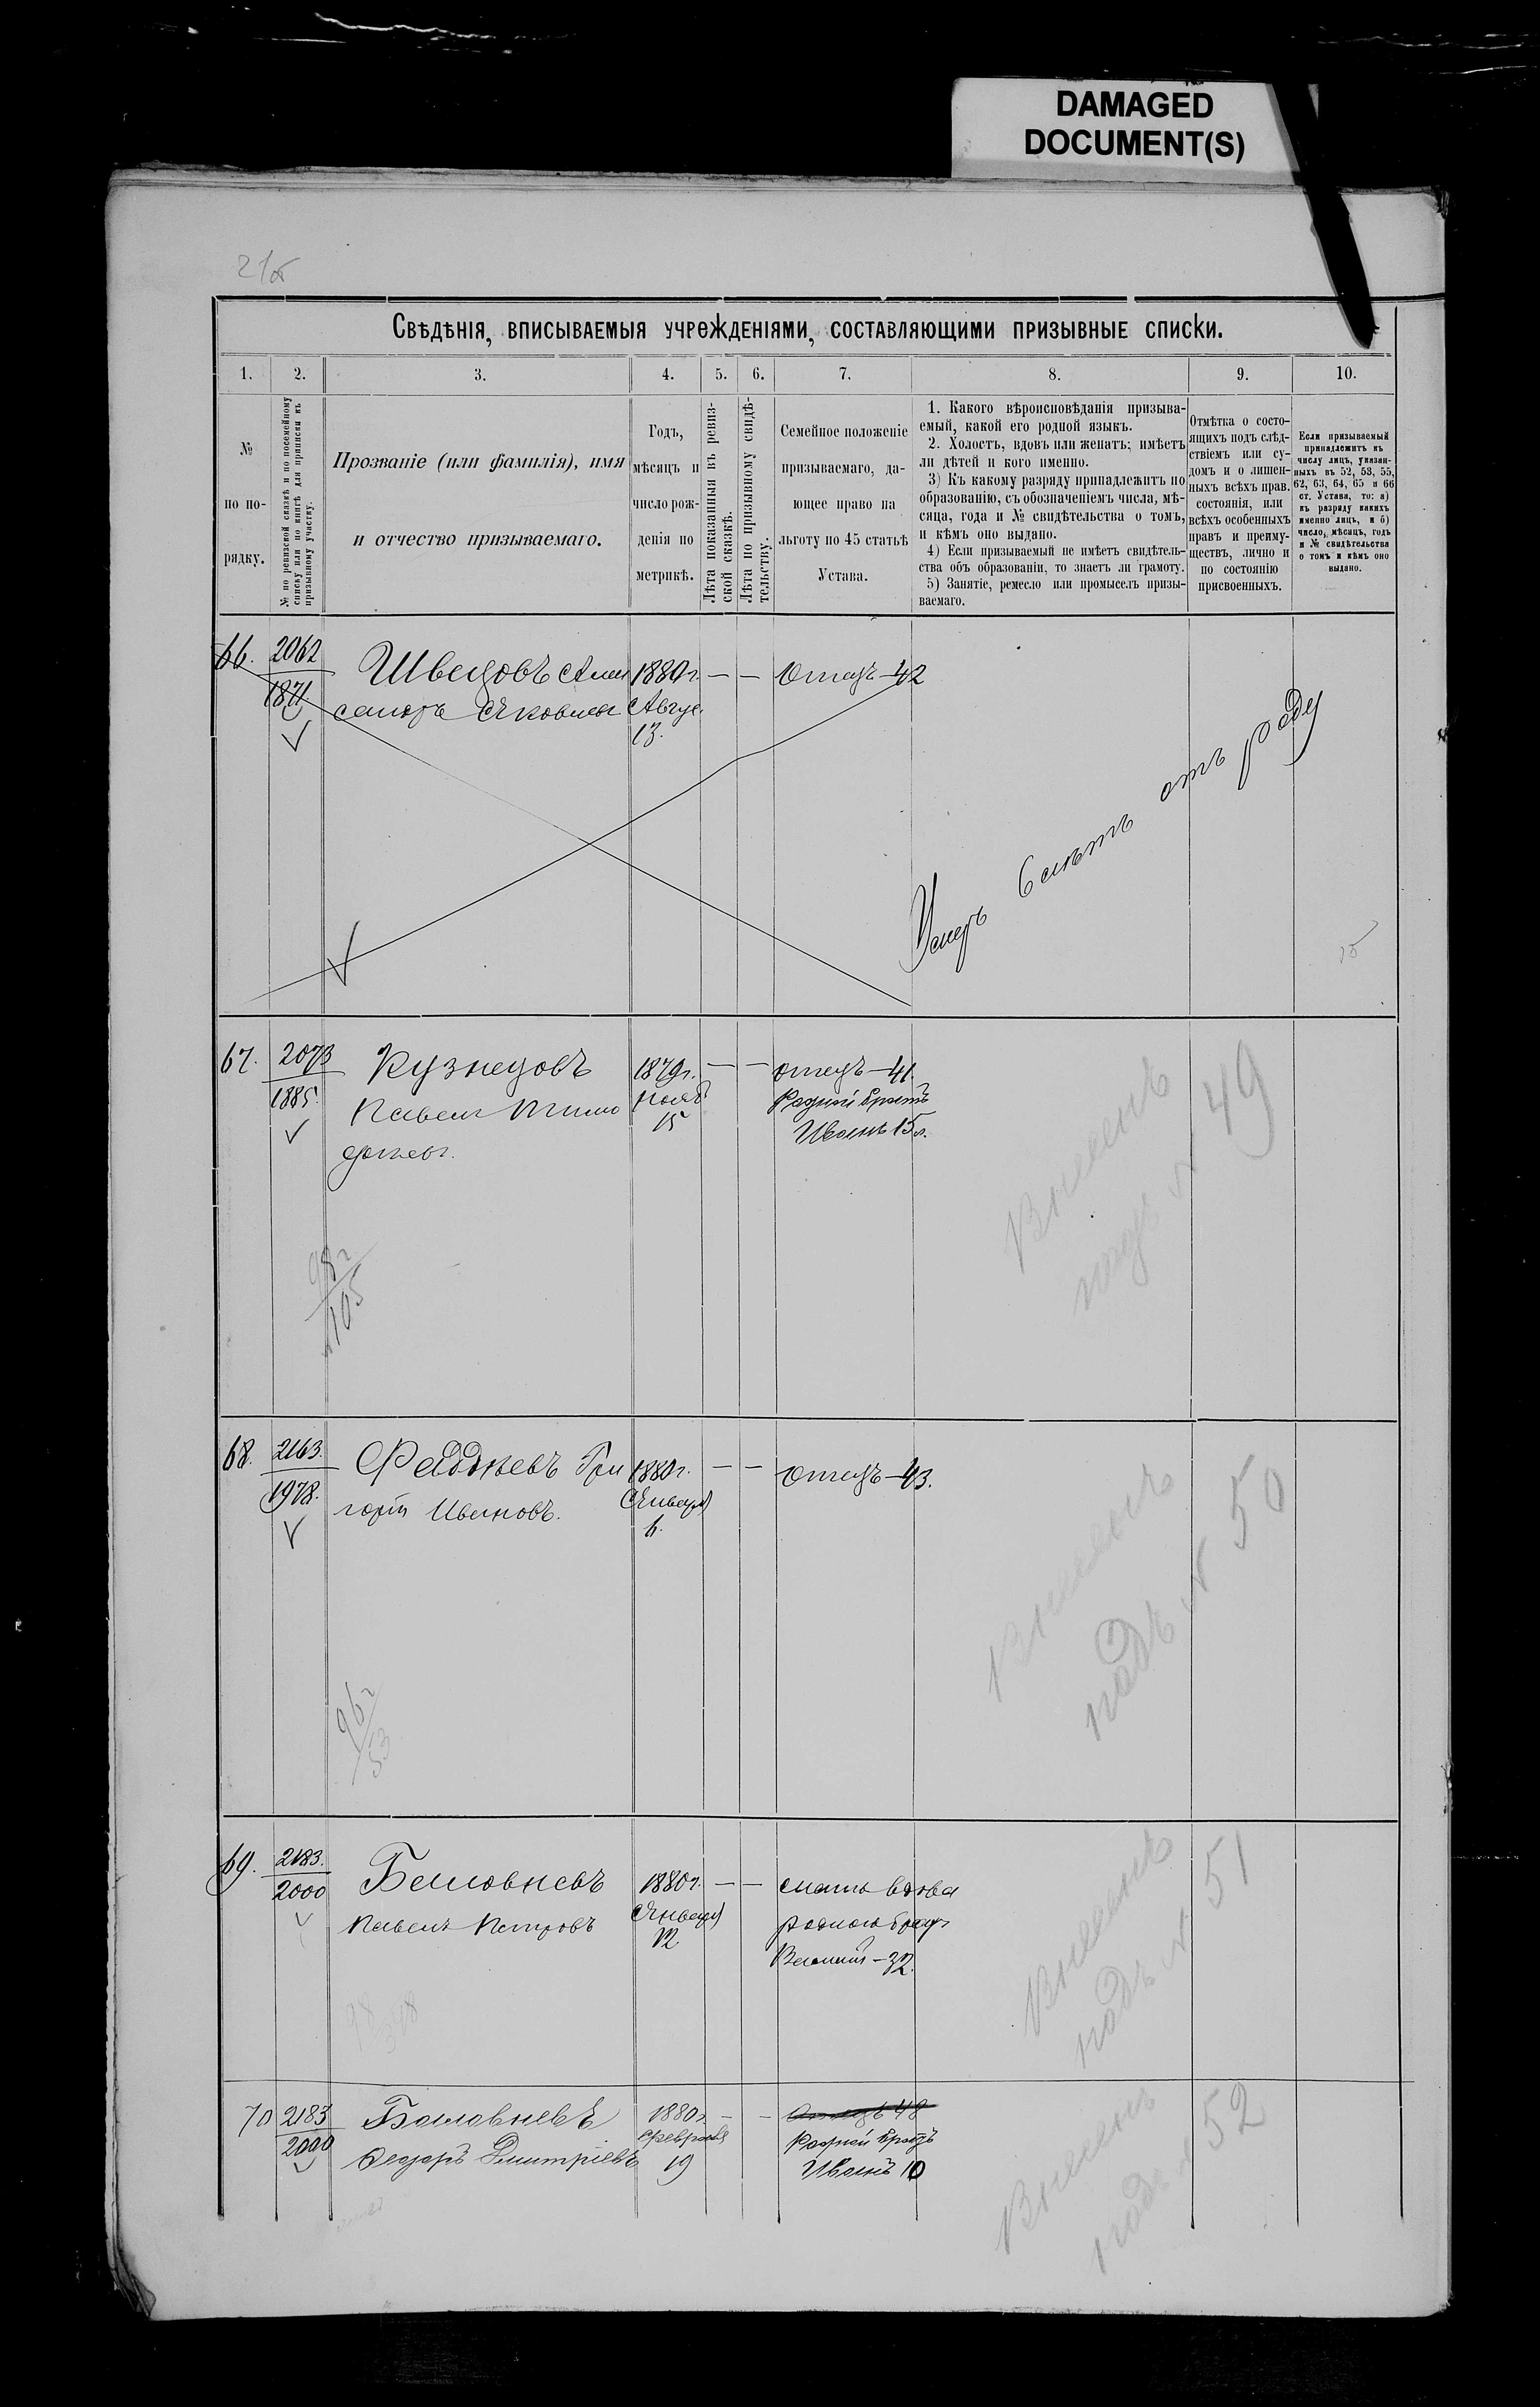 DAMAGED
DOCUMENT(S)
21об
Свѣдѣнія, вписываемыя учрежденіями, составляющими призывные списки.
1. 2. 3. 4. 5. 6. 7. 8. 9. 10.
№
по по-
рядку.
№ по ревизской сказкѣ и по посемейному
списку или по книгѣ для приписки къ
призывному участку.
Прозваніе (или фамилія), имя
и отчество призываемаго.
Годъ,
мѣсяцъ и
число рож-
денія по
метрикѣ.
Лѣта показанныя въ ревиз-
ской сказкѣ.
Лѣта по призывному свидѣ-
тельству.
Семейное положеніе
призываемаго, да-
ющее право на
льготу по 45 статьѣ
Устава.
1. Какого вѣроисповѣданія призыва-
емый, какой его родной языкъ.
2. Холостъ, вдовъ или женатъ; имѣетъ
ли дѣтей и кого именно.
3) Къ какому разряду принадлежитъ по
образованію, съ обозначеніемъ числа, мѣ-
сяца, года и № свидѣтельства о томъ,
и кѣмъ оно выдано.
4) Если призываемый не имѣетъ свидѣтель-
ства объ образованіи, то знаетъ ли грамоту.
5) Занятіе, ремесло или промыселъ призы-
ваемаго.
Отмѣтка о состо-
ящихъ подъ слѣд-
ствіемъ или су-
домъ и о лишен-
ныхъ всѣхъ прав.
состоянія, или
всѣхъ особенныхъ
правъ и преиму-
ществъ, лично и
по состоянію
присвоенныхъ.
Если призываемый
принадлежитъ къ
числу лицъ, указан-
ныхъ въ 52, 53, 55,
62, 63, 64, 65 и 66
ст. Устава, то: а)
къ разряду какихъ
именно лицъ, и б)
число, мѣсяцъ, годъ
и № свидѣтельства
о томъ и кѣмъ оно
выдано.
66. 2062 Швецовъ Алек 1880 г. — — Отецъ - 42
1871. сандръ Яковлев Авгус.
13.
Умеръ 6 лѣтъ отъ роду
67. 2073 Кузнецовъ 1879 г. — — Отецъ - 41.
1885. Павелъ Тимо Нояб. Родной братъ
фѣевъ. 15 Иванъ 15 л.
Внесенъ
подъ № 49
98 г
105
68. 2163. Фаддѣевъ Гри 1880 г. — — Отецъ - 43.
1978. горій Ивановъ. Января
6.
Внесенъ
подъ № 50
96 г
53
69. 2183. Боловневъ 1880 г. — — Мать вдова
2000 Павелъ Петровъ Января родной братъ
12. Василій - 32.
Внесенъ
подъ № 51
98
70 2183 Боловневъ 1880 г. — — Отецъ 48
2000 Ѳедоръ Дмитріевъ Февраля Родной братъ
19 Иванъ 10
Внесенъ
подъ № 52